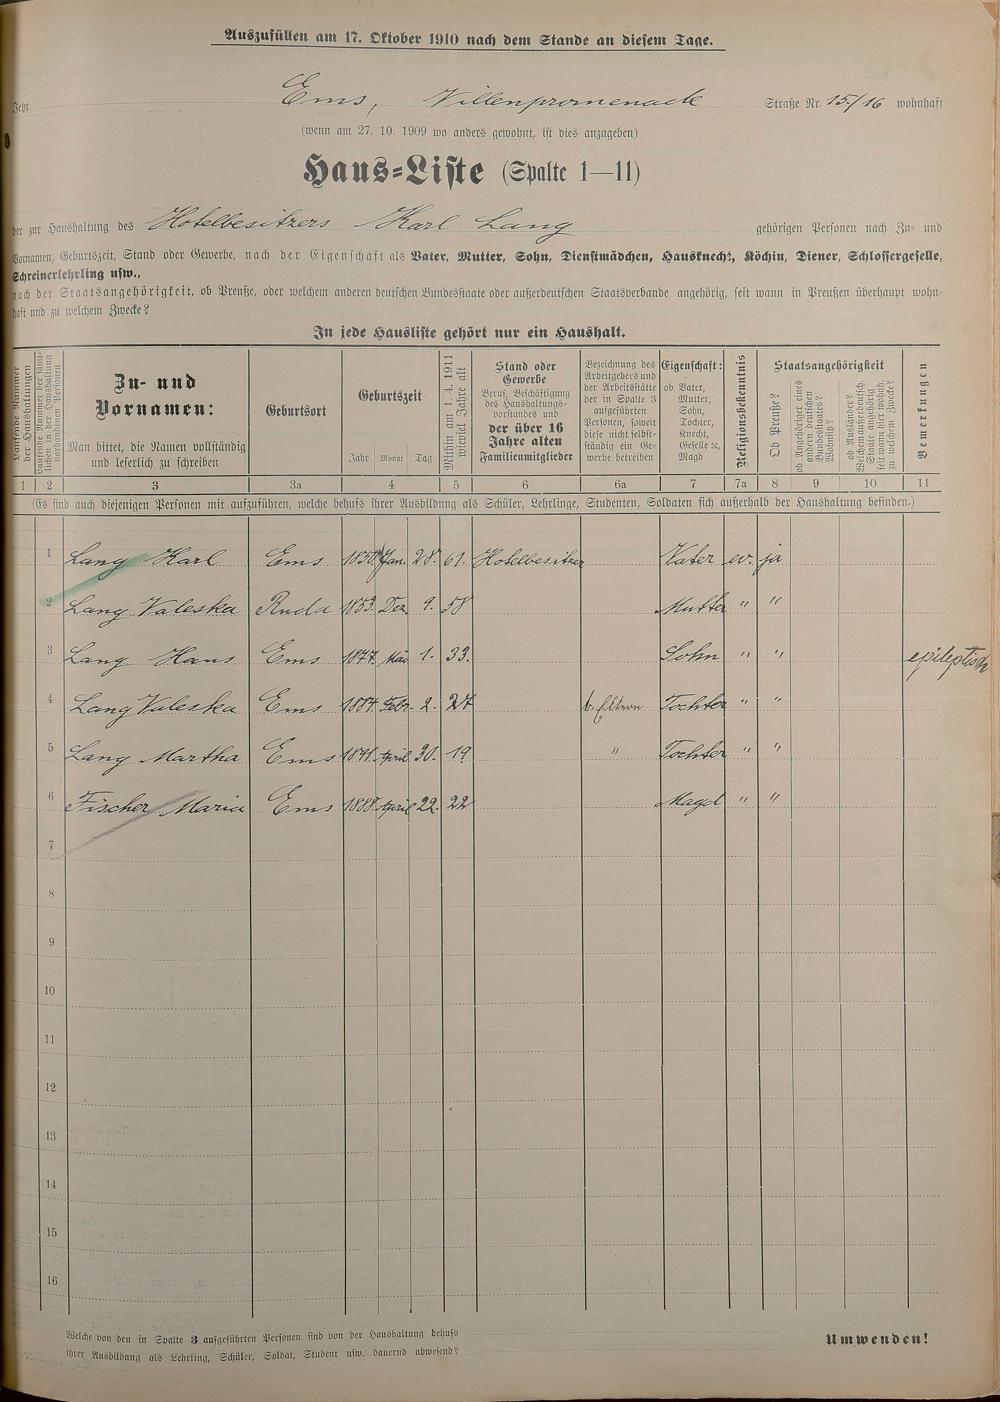 Auszufüllen am 17. Oktober 1910 nach dem Stande an diesem Tage.
Jetzt Ems, Villenpromenade Straße Nr. 15/16 wohnhaft
(wenn am 27. 10. 1909 wo anders gewohnt, ist dies anzugeben)
Haus=Liste (Spalte 1—11)
der zur Haushaltung des Hotelbesitzers Karl Lang gehörigen Personen nach Zu- und
Vornamen, Geburtszeit, Stand oder Gewerbe, nach der Eigenschaft als Vater, Mutter, Sohn, Dienstmädchen, Hausknecht, Köchin, Diener, Schlossergeselle,
Schreinerlehrling usw.,
nach der Staatsangehörigkeit, ob Preuße, oder welchem anderen deutschen Bundesstaate oder außerdeutschen Staatsverbande angehörig, seit wann in Preußen überhaupt wohn-
haft und zu welchem Zwecke?
In jede Hausliste gehört nur ein Haushalt.
Laufende Nummer der Haushaltungen
Laufende Nummer der sämt-lichen in der Haushaltung vorhandenen Personen
Zu- und Vornamen:
Man bittet, die Namen vollständig und leserlich zu schreiben
Geburtsort
Geburtszeit
Jahr Monat Tag
Mithin am 1. 4. 1911 wieviel Jahre alt
Stand oder Gewerbe
Beruf, Beschäftigung des Haushaltungs-vorstandes und der über 16 Jahre alten Familienmitglieder
Bezeichnung des Arbeitgebers und der Arbeitsstätte der in Spalte 3 aufgeführten Personen, soweit diese nicht selbst-ständig ein Ge-werbe betreiben
Eigenschaft:
ob Vater, Mutter, Sohn, Tochter, Knecht, Geselle ec, Magd
Religionsbekenntnis
Staatsangehörigkeit
Ob Preuße?
ob Angehöriger eines andern deutschen Bundesstaates? Womit?
ob Ausländer? Welchem außerdeutsch. Staate angehörig seit wann hier wohnh. zu welchem Zwecke?
Bemerkungen
1 2 3 3a 4 5 6 6a 7 7a 8 9 10 11
(Es sind auch diejenigen Personen mit aufzuführen, welche behufs ihrer Ausbildung als Schüler, Lehrlinge, Studenten, Soldaten sich außerhalb der Haushaltung befinden.)
1 Lang Karl Ems Jan. 28. 61. Hotelbesitzer Vater ev. ja
2 Lang Valeska Ruda 1853. Dez. 9. 58 Mutter " "
3 Lang Hans Ems 1877. Mai 1. 33. Sohn " " epileptisch
4 Lang Valeska Ems 1887. Febr. 2. 24 b. Eltern Tochter " "
5 Lang Martha Ems 1891. April 30. 19 " Tochter " "
6 Fischer Maria Ems 1888. April 22. 22 Magd " "
7
8
9
10
11
12
13
14
15
16
Welche von den in Spalte 3 aufgeführten Personen sind von der Haushaltung behufs
ihrer Ausbildung als Lehrling, Schüler, Soldat, Student usw. dauernd abwesend?
Umwenden!